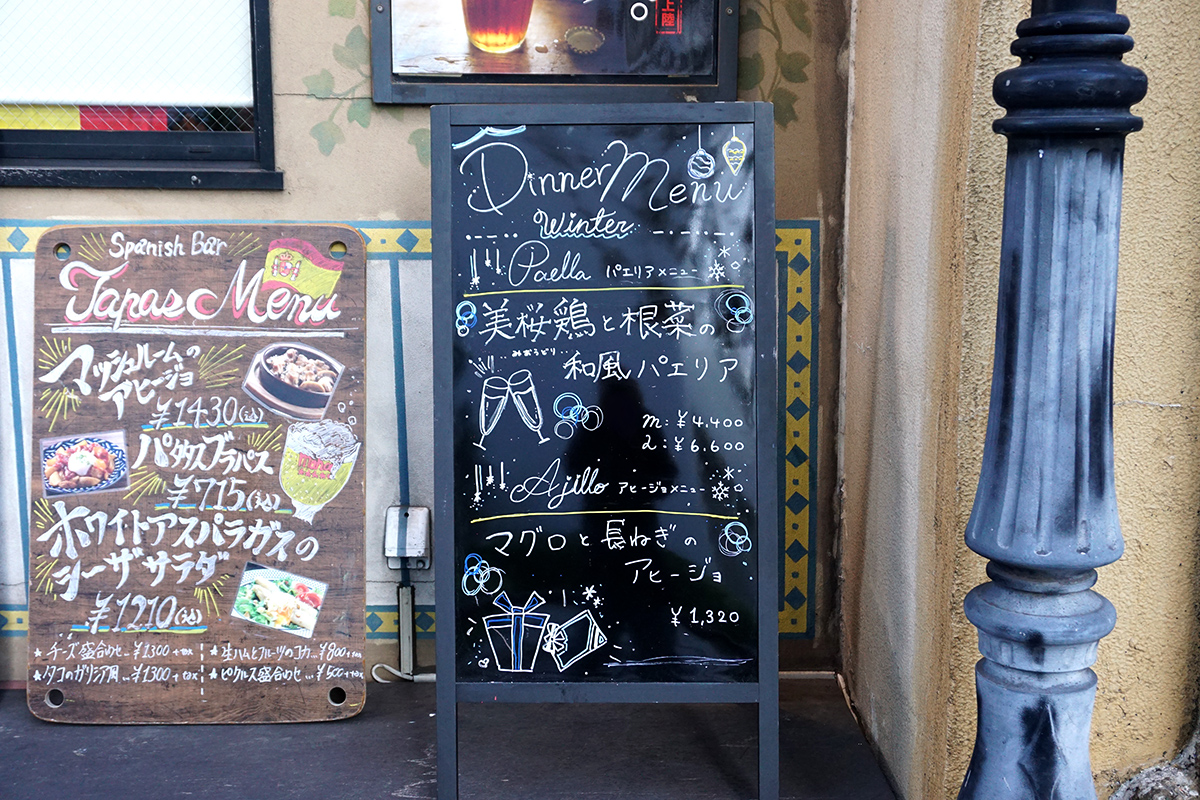 上陸
Spanish Bar
Tapas Menu
マッシュルームの
アヒージョ
¥1430(込)
パタタスブラバス
¥715(込)
ホワイトアスパラガスの
シーザーサラダ
¥1210(込)
★チーズ盛合わせ…¥1300+tax
★タコのガリシア風…¥1300+tax
★生ハムとフルーツのコカ…¥800+tax
★ピクルス盛合わせ…¥500+tax
Dinner Menu
Winter
Paella パエリアメニュー
美桜鶏と根菜の
みおうどり
和風パエリア
M:¥4,400
L:¥6,600
Ajillo アヒージョメニュー
マグロと長ねぎの
アヒージョ
¥1,320